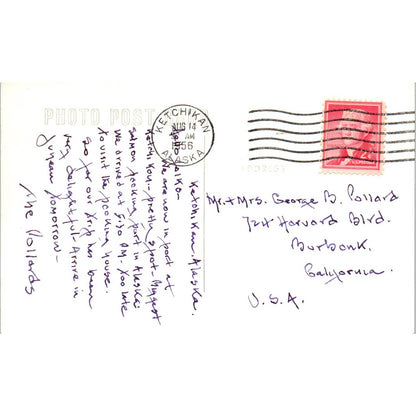 PHOTO POST
KETCHIKAN
AUG 14
AM
1956
ALASKA
2¢
Ketchikan. Alaska.
We are now in port at
Ketchikan - pretty spot - Biggest
salmon packing port in Alaska.
We arrived at 5:30 P.M. Too late
to visit the packing house.
So far our trip has been
very delightful - Arrive in
Juneau tomorrow -
The Pollards
Mr. + Mrs. George B. Pollard
Harvard Blvd.
Burbank.
California.
U.S.A.